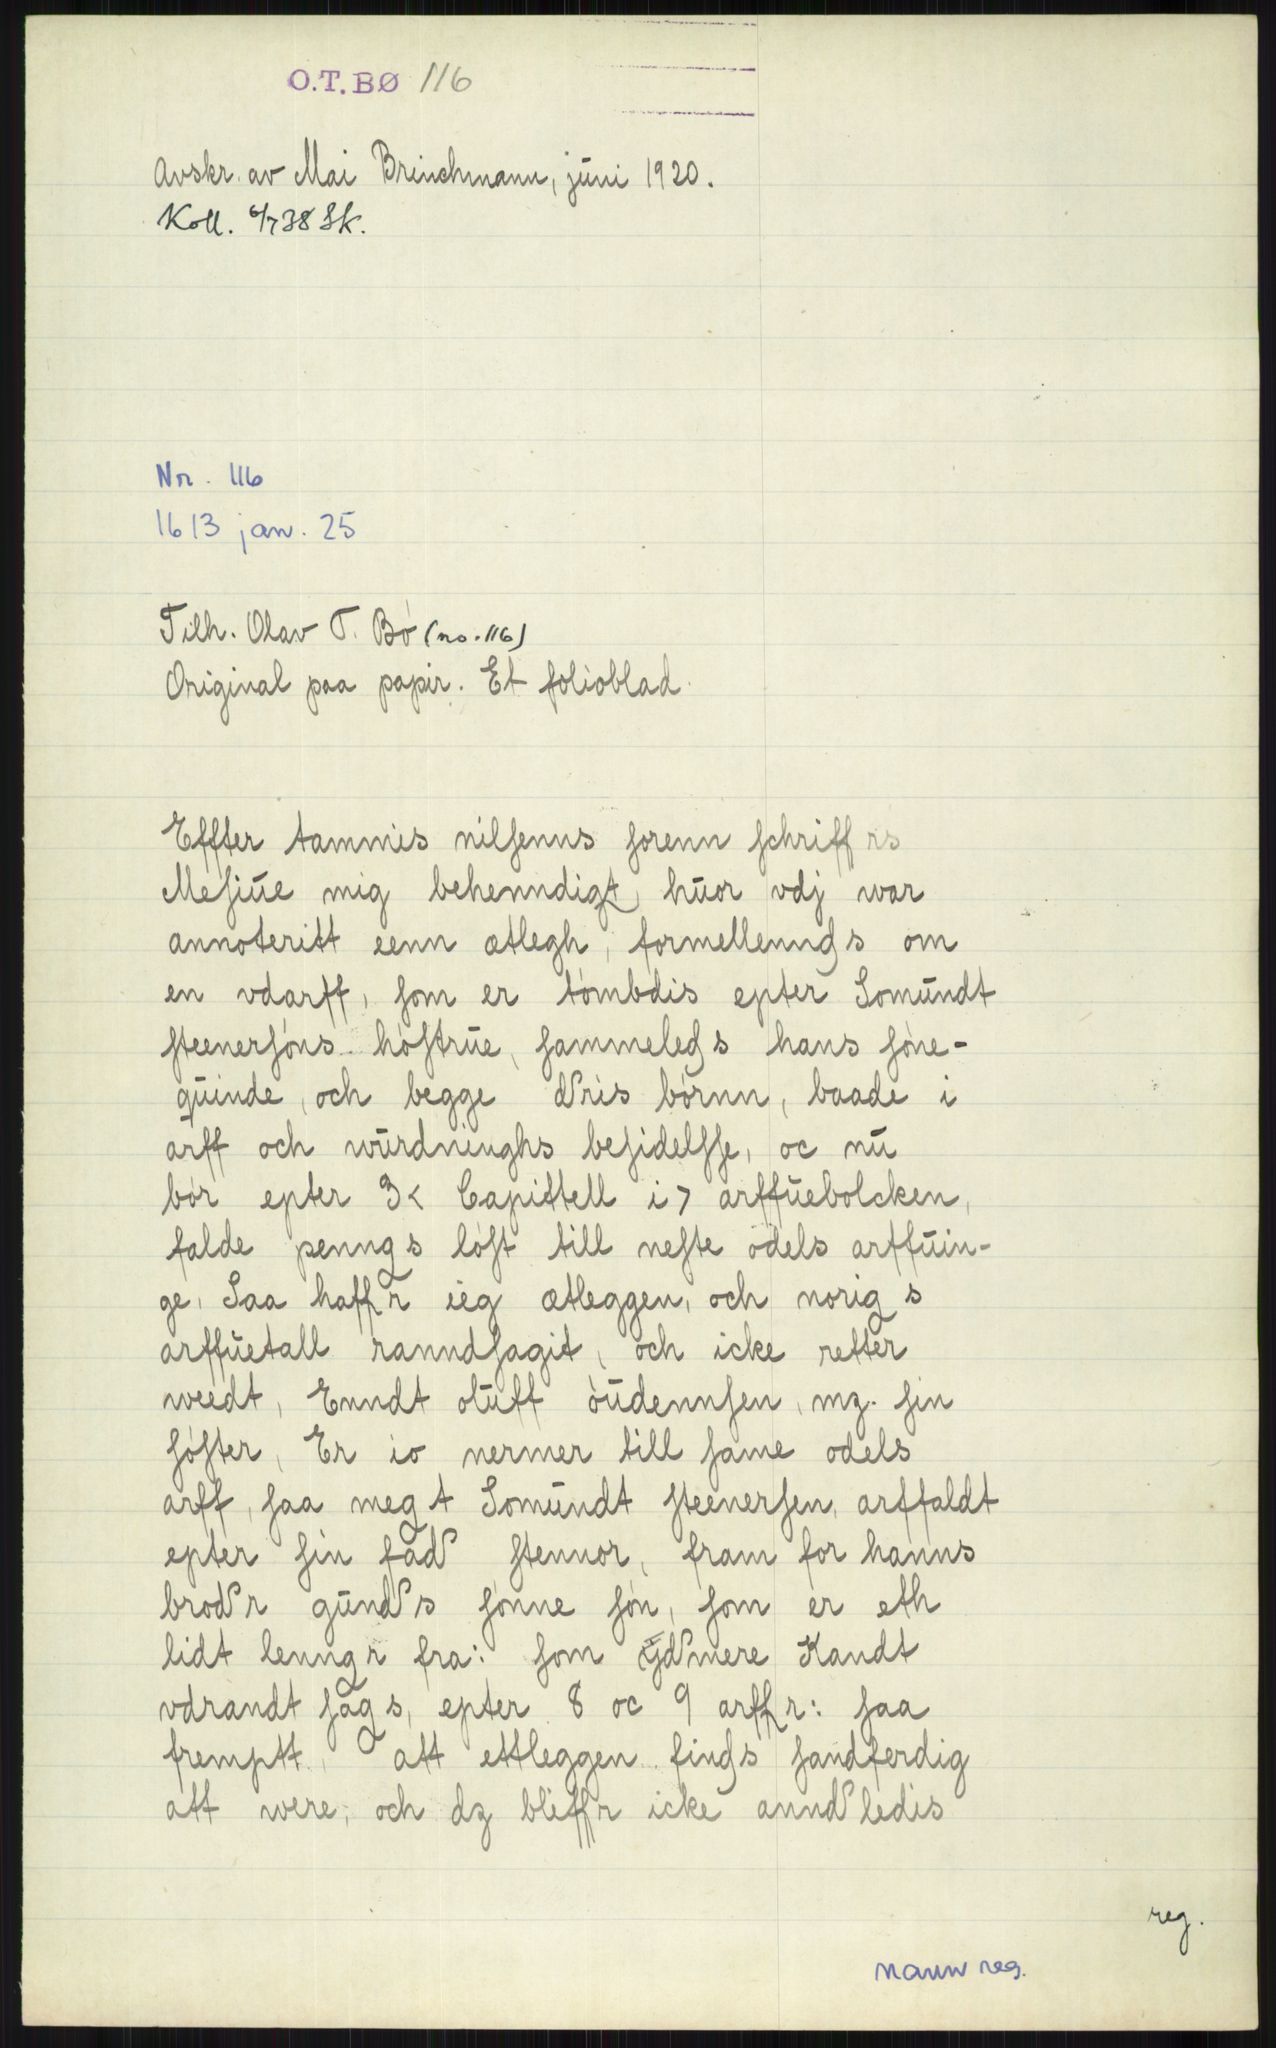 O.T. BØ 116
Avskr. av Mai Brinchmann, juni 1920.
Koll. 6/7 38 Sk.
Nr. 116
1613 jan. 25
Tilh. Olav T. Bö (no. 116)
Original paa papir. Et folioblad.
Effter tammis nilſenns ſorenn ſchriff rs
Meſiŭe mig behenndigt, hŭor vdj war
annoteritt eenn ætlegh, formellenngs om
en vdarff, ſom er tömbdis epter Somŭndt
ſteenerſöns höſtrŭe, ſammelegs hans ſöne-
qŭinde, och begge dris börnn, baade i
arff och wŭrdninghs beſidelſſe, oc nŭ
bör epter 3< Capittell i 7 arffŭebolcken,
falde penngs löſt till neſte odels arffŭin-
ge, Saa haffr ieg ætleggen, och norigs
arffŭetall ranndſagit, och icke retter
weedt, Enndt olŭff öŭdennſen, mz. ſin
ſöſter, Er io nermer till ſame odels
arff, ſaa megt Somŭndt ſteenerſen, arffaldt
epter ſin fad ſtennor, fram for hanns
brodr gŭnds ſönne ſön, ſom er eth
lidt lenngr fra: ſom ÿdmere Kandt
vdrandt ſags, epter 8 oc 9 arffr: ſaa
fremptt, att ettleggen findgs ſandferdig
att were, och dz bliffr icke annd ledis
reg.
navn reg.